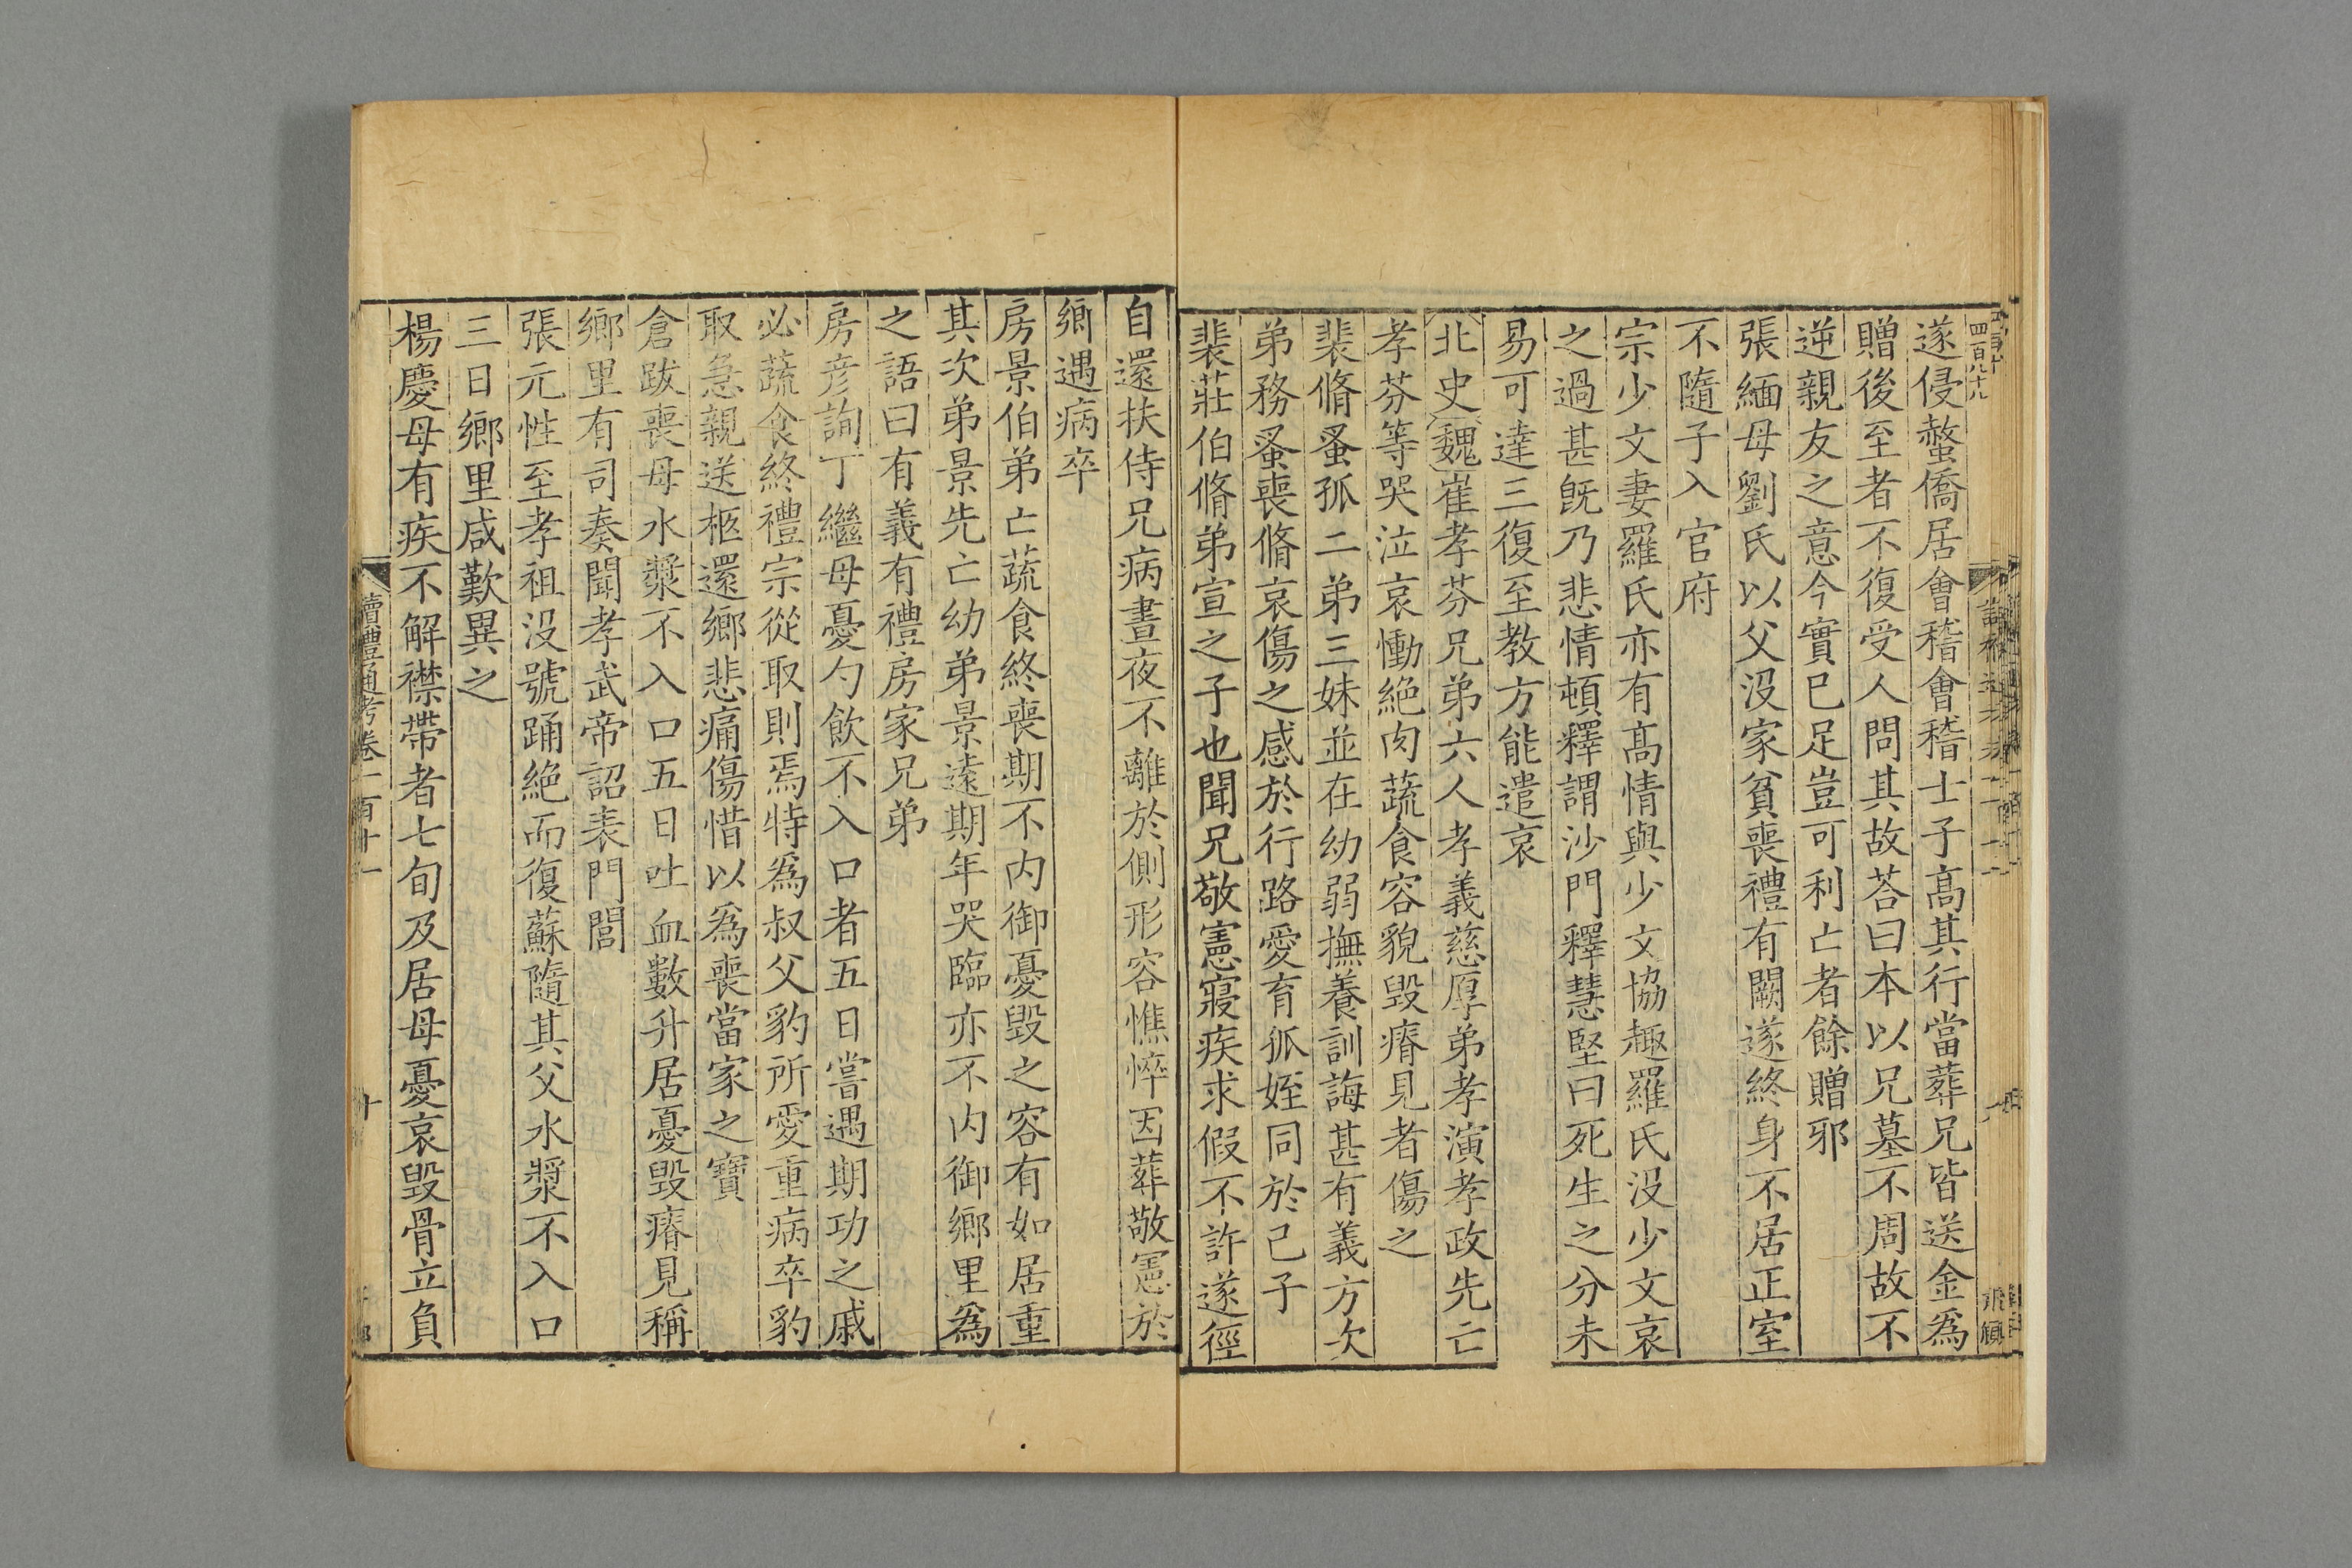 四百八十九
遂侵螫僑居會稽會稽士子高其行當葬兄皆送金爲
贈後至者不復受人問其故荅曰本以兄墓不周故不
逆親友之意今實已足豈可利亡者餘贈邪
張緬母劉氏以父沒家貧喪禮有闕遂終身不居正室
不隨子入官府
宗少文妻羅氏亦有高情與少文協趣羅氏沒少文哀
之過甚旣乃悲情頓釋謂沙門釋慧堅曰死生之分未
易可達三復至教方能遣哀
北史魏崔孝芬兄弟六人孝義慈厚弟孝演孝政先亡
孝芬等哭泣哀慟絶肉蔬食容貌毀瘠見者傷之
裴脩蚤孤二弟三妹並在幼弱撫養訓誨甚有義方次
弟務蚤喪脩哀傷之感於行路愛育孤姪同於己子
裴莊伯脩弟宣之子也聞兄敬憲寢疾求假不許遂徑
自還扶侍兄病晝夜不離於側形容憔悴因葬敬憲於
鄉遇病卒
房景伯弟亡蔬食終喪期不内御憂毀之容有如居重
其次弟景先亡幼弟景遠期年哭臨亦不内御鄉里爲
之語曰有義有禮房家兄弟
房彦詢丁繼母憂勺飲不入口者五日嘗遇期功之戚
必蔬食終禮宗從取則焉特爲叔父豹所愛重病卒豹
取急親送柩還鄉悲痛傷惜以爲喪當家之寶
倉跋喪母水漿不入口五日吐血數升居憂毀瘠見稱
鄉里有司奏聞孝武帝詔表門閭
張元性至孝祖沒號踊絶而復蘇隨其父水漿不入口
三日鄉里咸歎異之
楊慶母有疾不解襟帶者七旬及居母憂哀毀骨立負
讀禮通考卷一百十一
十